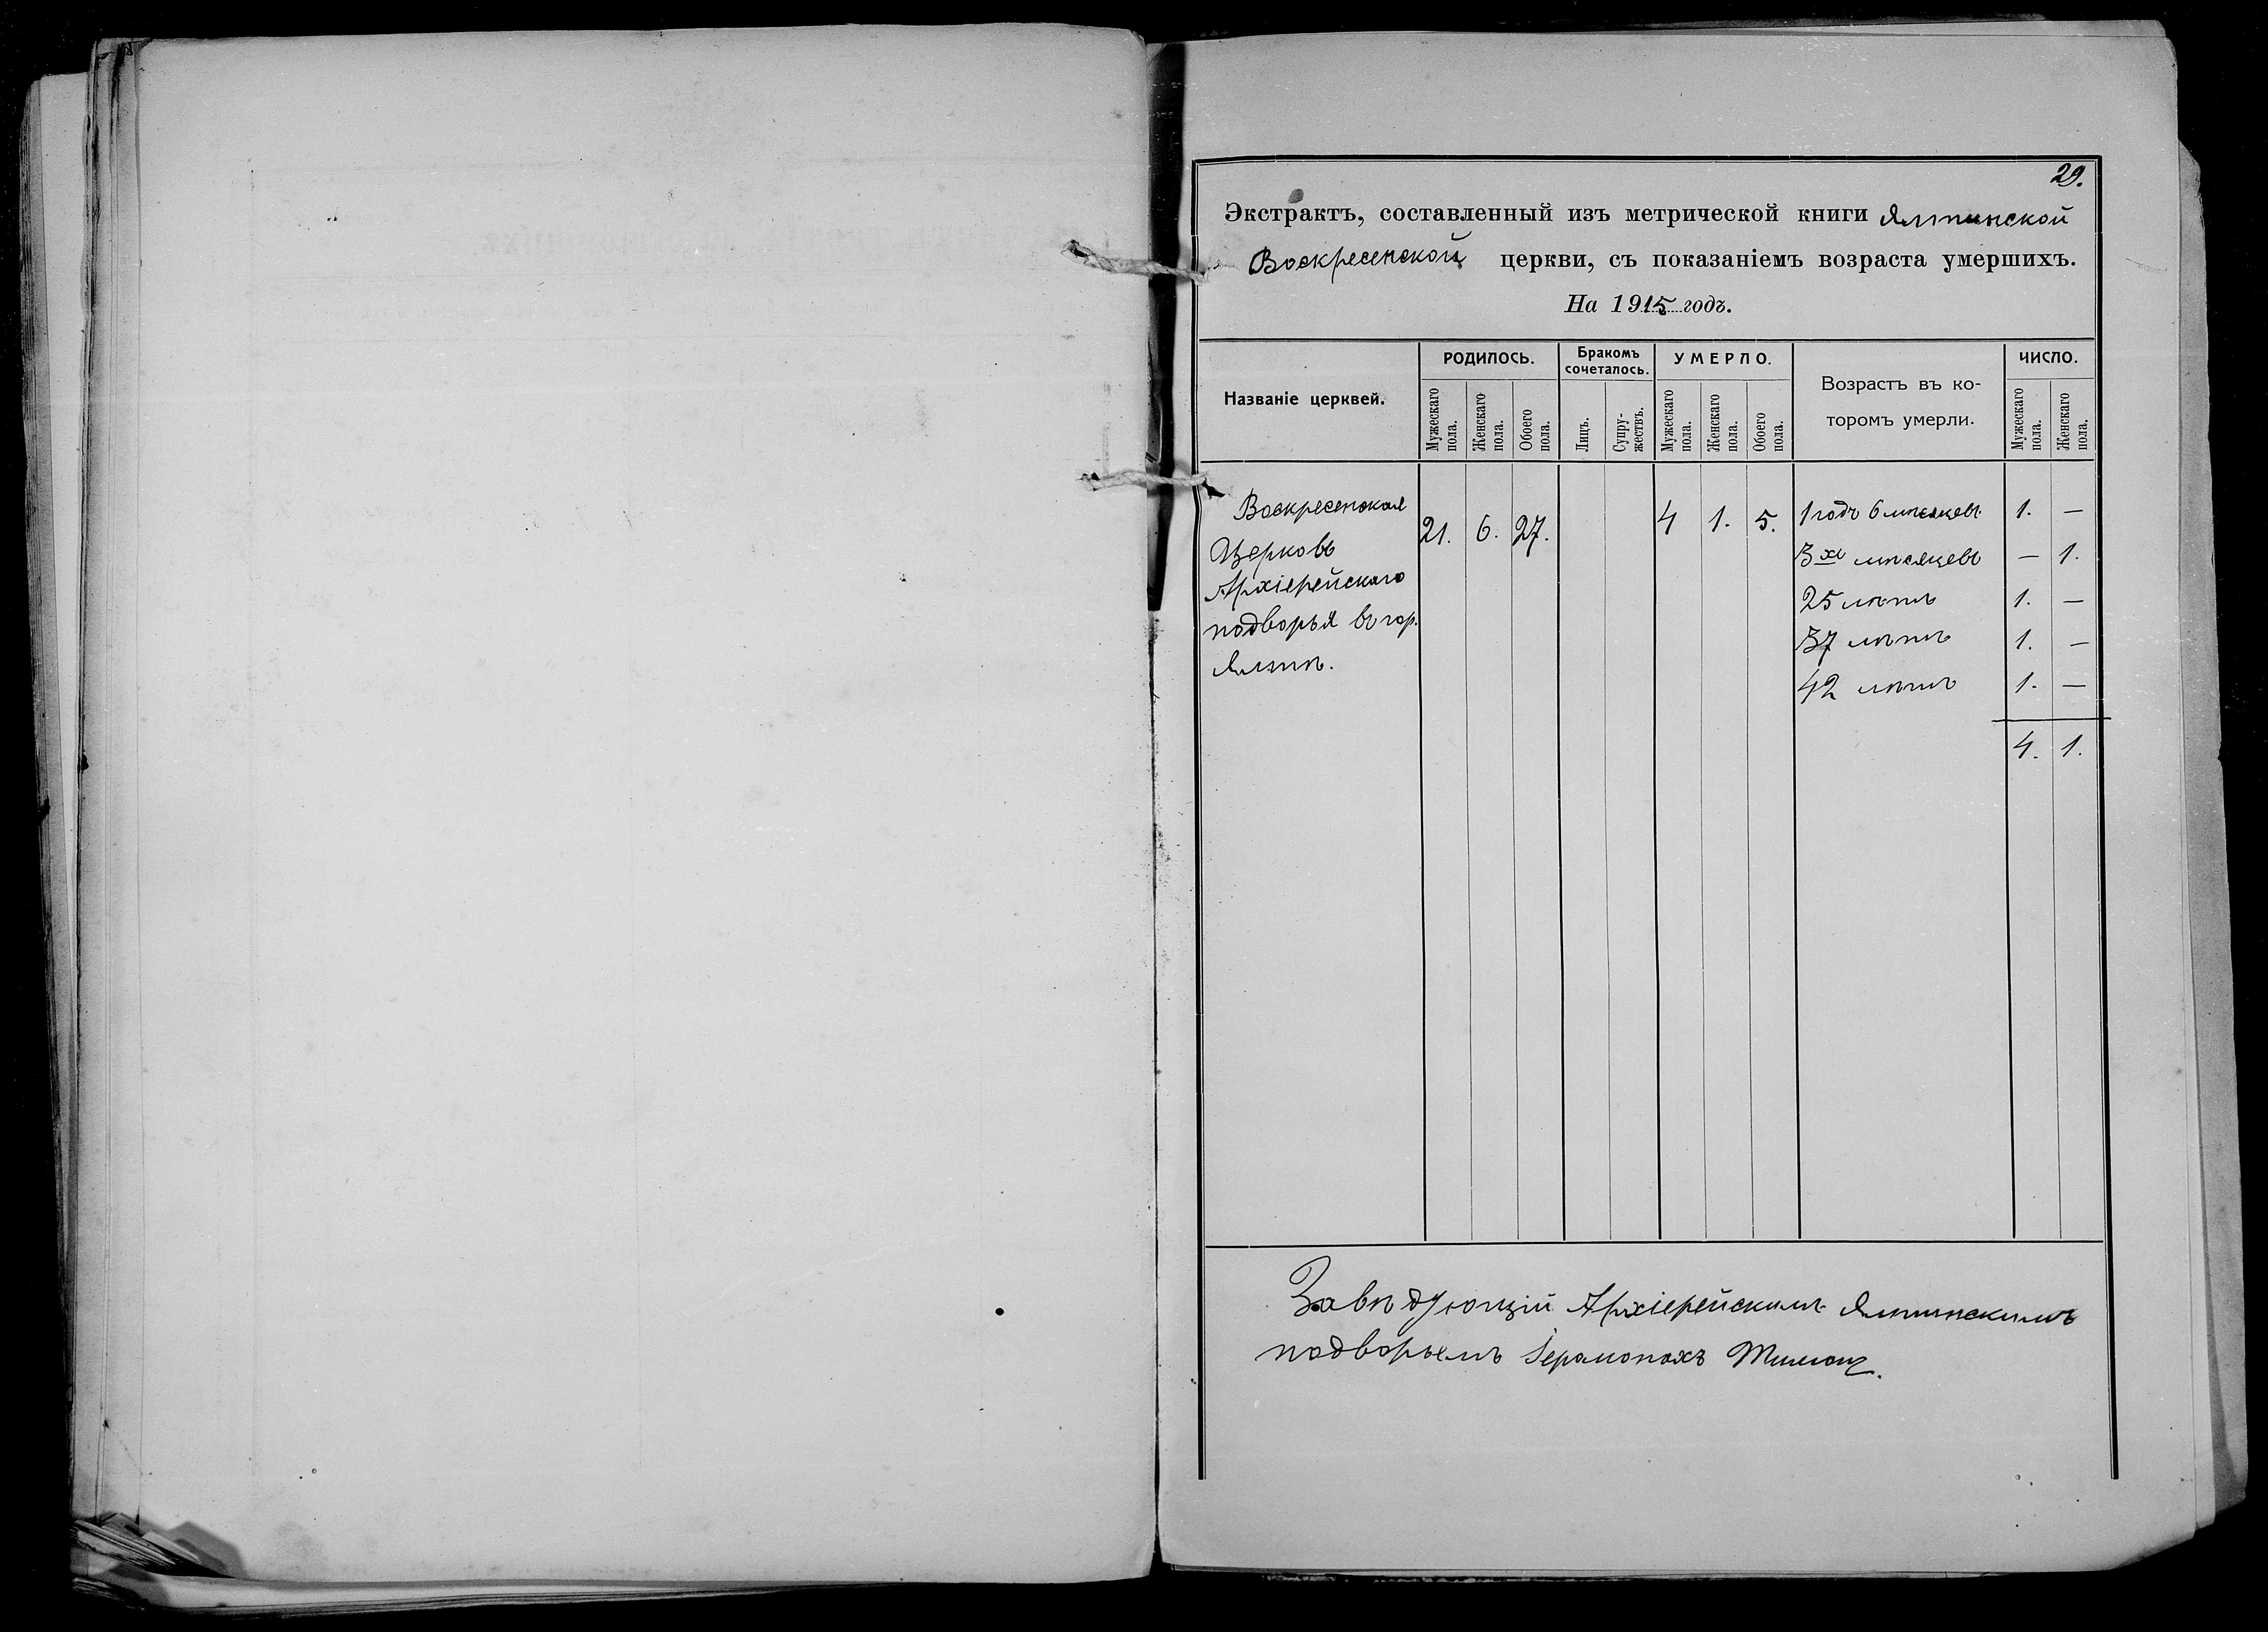 29.
Экстрактъ, составленный изъ метрической книги Ялтинской
Воскресенской церкви, съ показаніемъ возраста умершихъ.
На 1915 годъ.
Названіе церквей.
РОДИЛОСЬ.
Бракомъ
сочеталось.
УМЕРЛО.
Возрастъ въ ко-
торомъ умерли.
ЧИСЛО.
Мужескаго
пола.
Женскаго
пола.
Обоего
пола.
Лицъ.
Супру-
жествъ.
Мужескаго
пола.
Женскаго
пола.
Обоего
пола.
Мужескаго
пола.
Женскаго
пола.
Воскресенская
Церковь
Архіерейскаго
подворья въ гор.
Ялтѣ.
21. 6. 27. 4 1. 5.
1 годъ 6 мѣсяцевъ 1. —
3хъ мѣсяцевъ — 1.
25 лѣтъ 1. —
37 лѣтъ 1. —
42 лѣтъ 1. —
4. 1.
Завѣдующій Архіерейскимъ Ялтинскимъ
подворьемъ Іеромонахъ